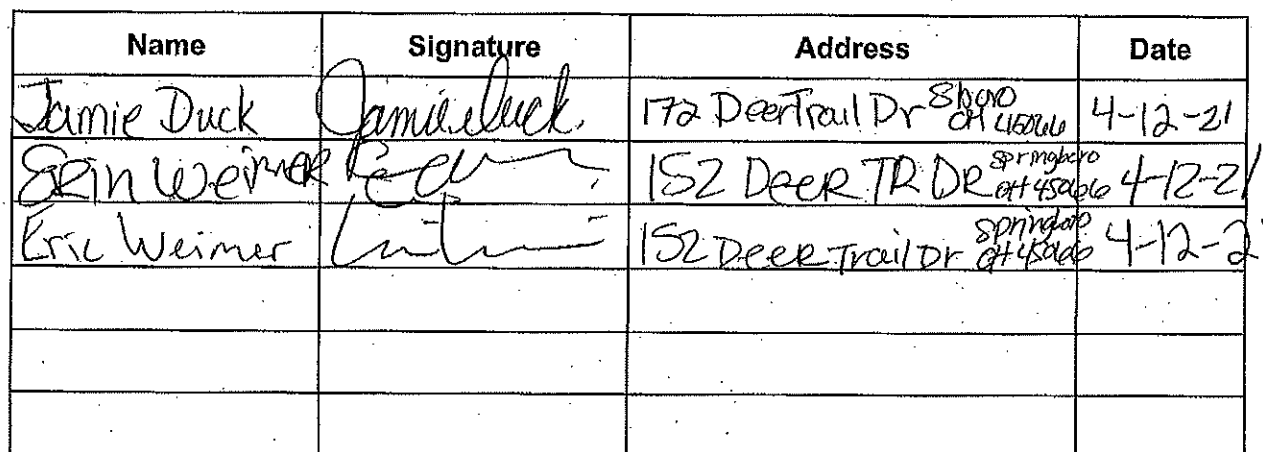 Name Signature Address Date
Jamie Duck Jamie Duck. 172 Deer Trail Dr S'boro OH 45066 4-12-21
ERin WeimeR 152 DeeR TR DR Springboro OH 45066 4-12-21
Eric Weimer 152 DeeR Trail Dr Springboro OH 45066 4-12-2